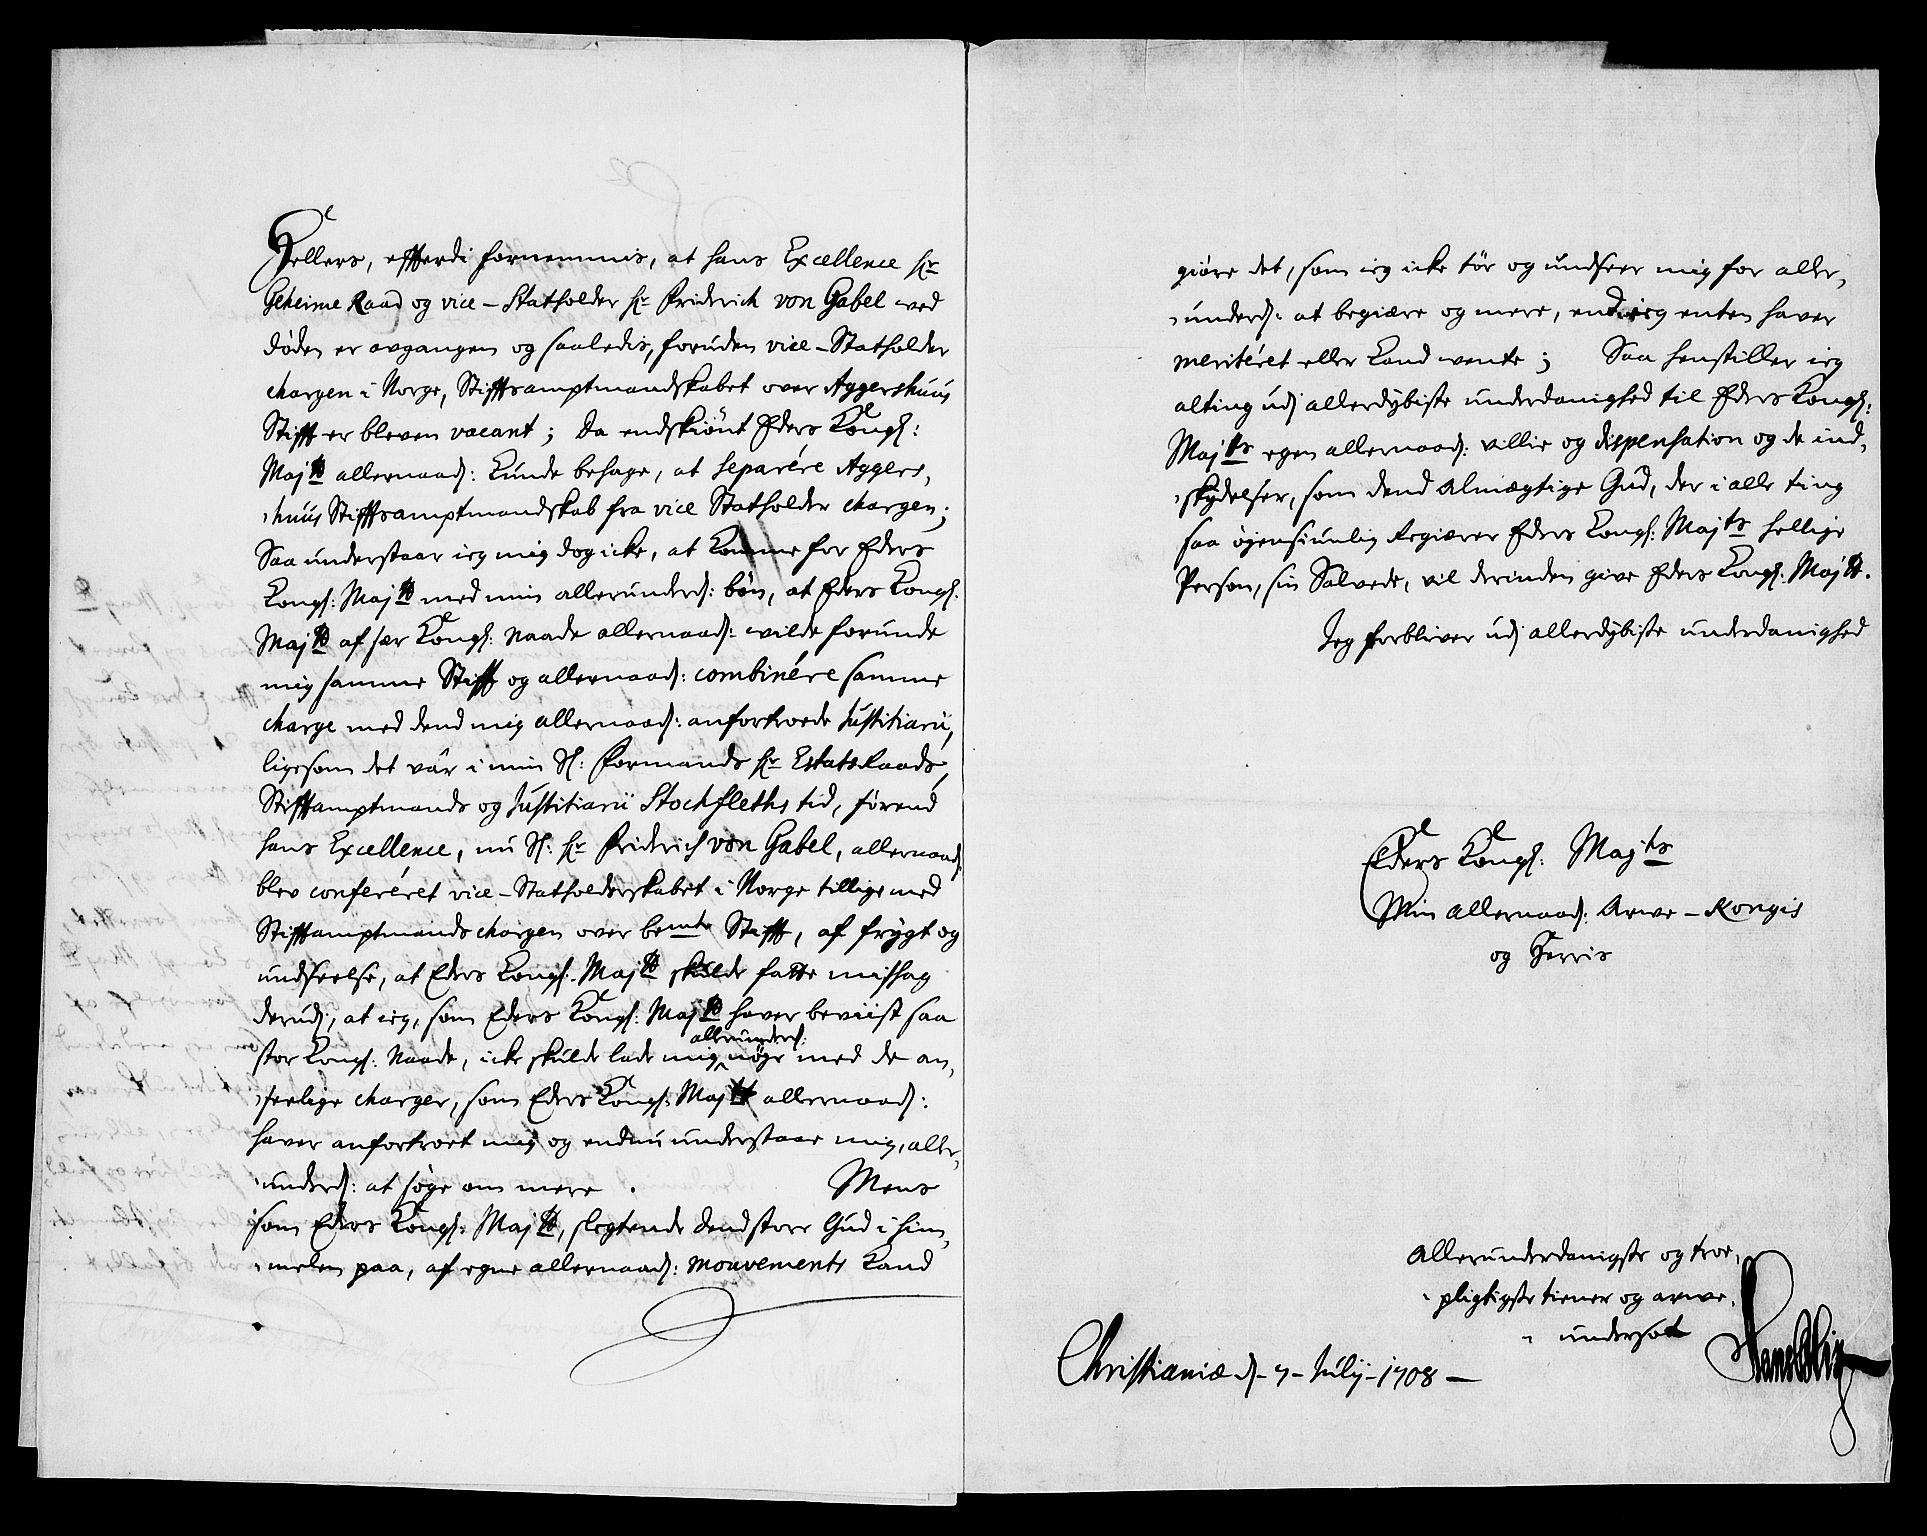 Hellers, efterdi fornemmis, at hans Excellence Hr
Geheime Raad og vice-Statholder Hr Friderich von Gabel ved
døden er avgangen og saaledis, foruden vice-Statholder
chargen i Norge, Stifftsamptmandskabet over Aggershuus
Stifft er bleven vacant; Da endskiönt Eders Kongl:
Maj:tt allernaad: kunde behage, at separére Aggers,
huus Stifftsamptmandskab fra vice Statholder chargen;
Saa understaar ieg mig dog icke, at komme for Eders
Kongl: Maj:tt med min allerunderd: bön, at Eders Kongl:
Maj:tt af sær Kongl: Naade allernaad: vilde forunde
mig samme Stifft og allernaad: combinére samme
charge med dend mig allernaad: anfortroede Justitiarii,
ligesom det vár i min Sl: Formands Hr Estats Raads,
Stifftamptmands og Justitiarii Stockfleths tid, förend
hans Excellence, nu Sl: Hr Friderich von Gabel, allernaad:
blev conferéret vice-Statholderskabet i Norge tillige med
Stifftamptmands chargen over bemte Stifft, af frygt og
undseelse, at Eders Kongl: Maj:tt skulde fatte mishag
derudj, at ieg, som Eders Kongl: Maj:tt haver beviist saa
stor Kongl: Naade, icke skulde lade mig allerunderd: nöye med de an,
seelige charger, som Eders Kongl: Maj:tt allernaad:
haver anfortroet mig og endnu understaar mig, aller,
underd: at söge om mere. Mens
som Eders Kongl: Maj:tt, slegtende dend store Gud i him,
melen paa, af egne allernaad: mouvements kand
giöre det, som ieg icke tör og undseer mig for aller,
underd: at begiære og mere, end ieg enten haver
meritéret eller kand vente; Saa henstiller ieg
alting udj allerdybiste underdanighed til Eders Kongl:
Maj:ts egen allernaad: villie og dispensation og de ind,
skydelser, som dend Almægtige Gud, der i alle ting
saa öjensiunlig Regiærer Eders Kongl: Maj:ts hellige
Person, sin Salvede, vil derinden give Eders Kongl: Maj:tt.
Jeg forbliver udj allerdybiste underdanighed
Eders Kongl: Maj:ts
Min Allernaad: Arve-Kongis
og Herris
Allerunderdanigste og troe,
pligtigste tiener og arve,
undersot
Christianiæ d. 7 Julij 1708